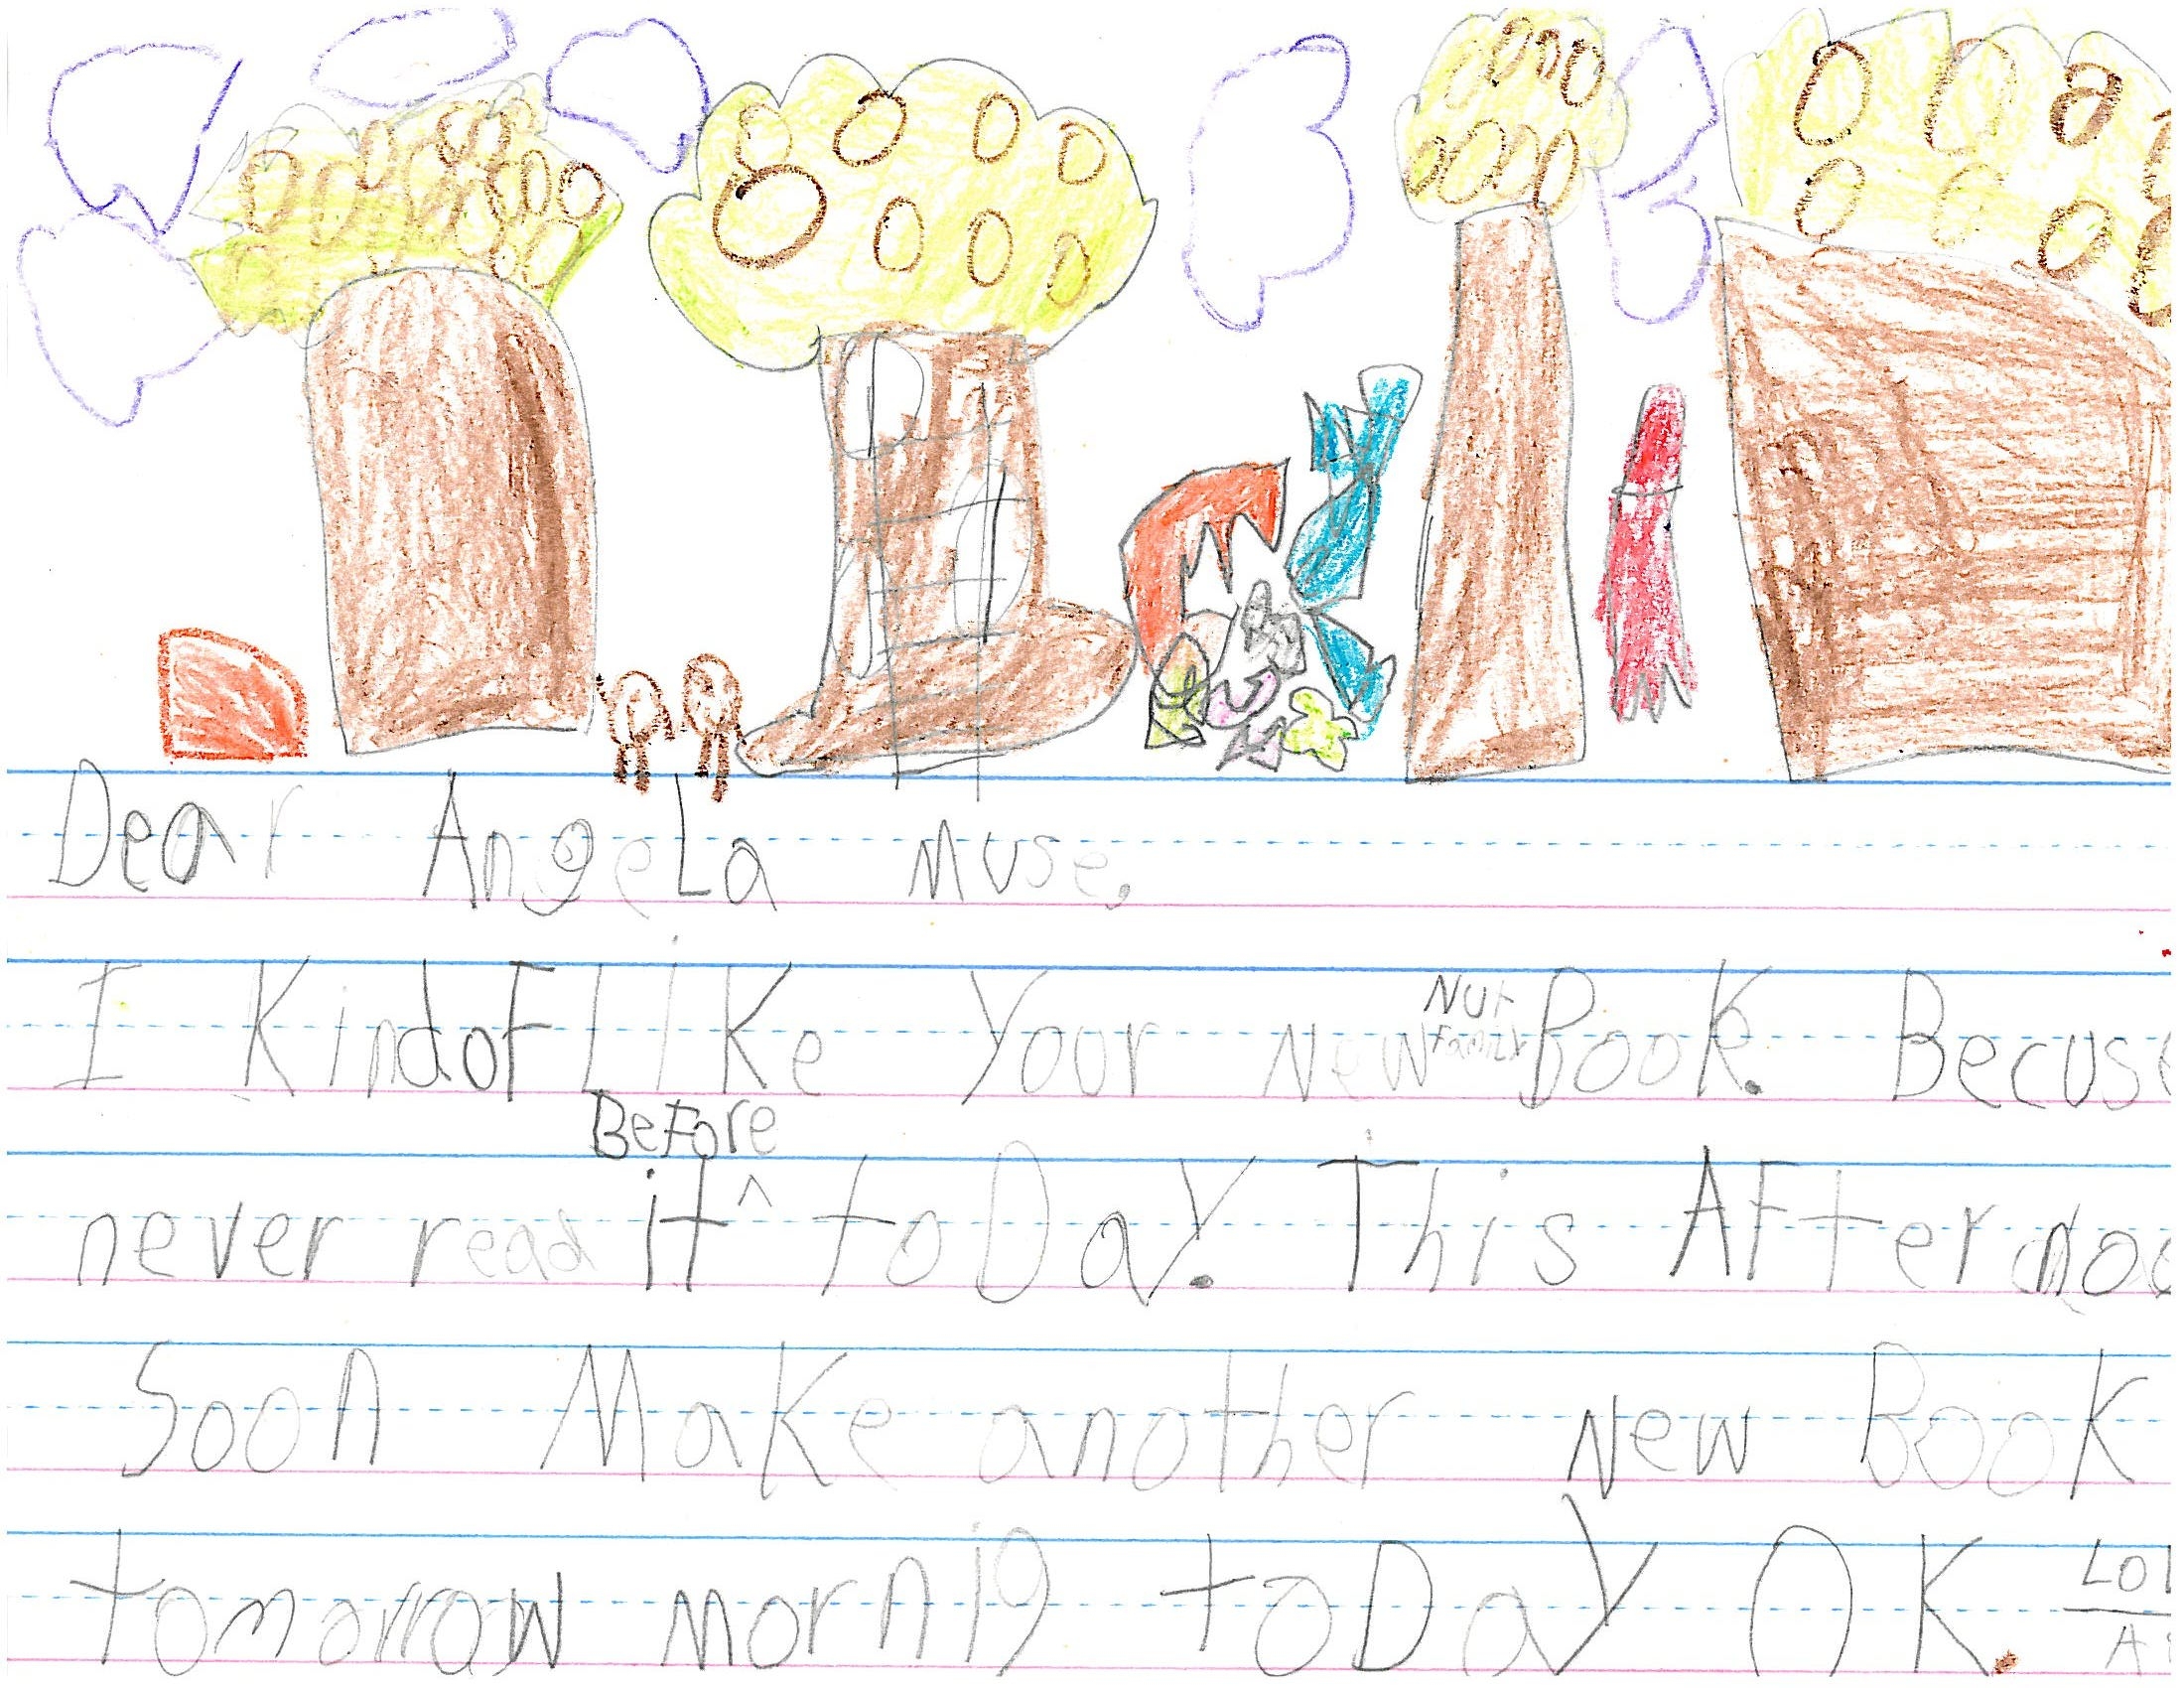 Dear AngeLa muse,
I KindoF LiKe Your New Nut Family BooK. Becuse
never read it ^ Before toDay. This AFternoo
Soon MaKe another New BooK
tomorrow mornig toDaY OK.